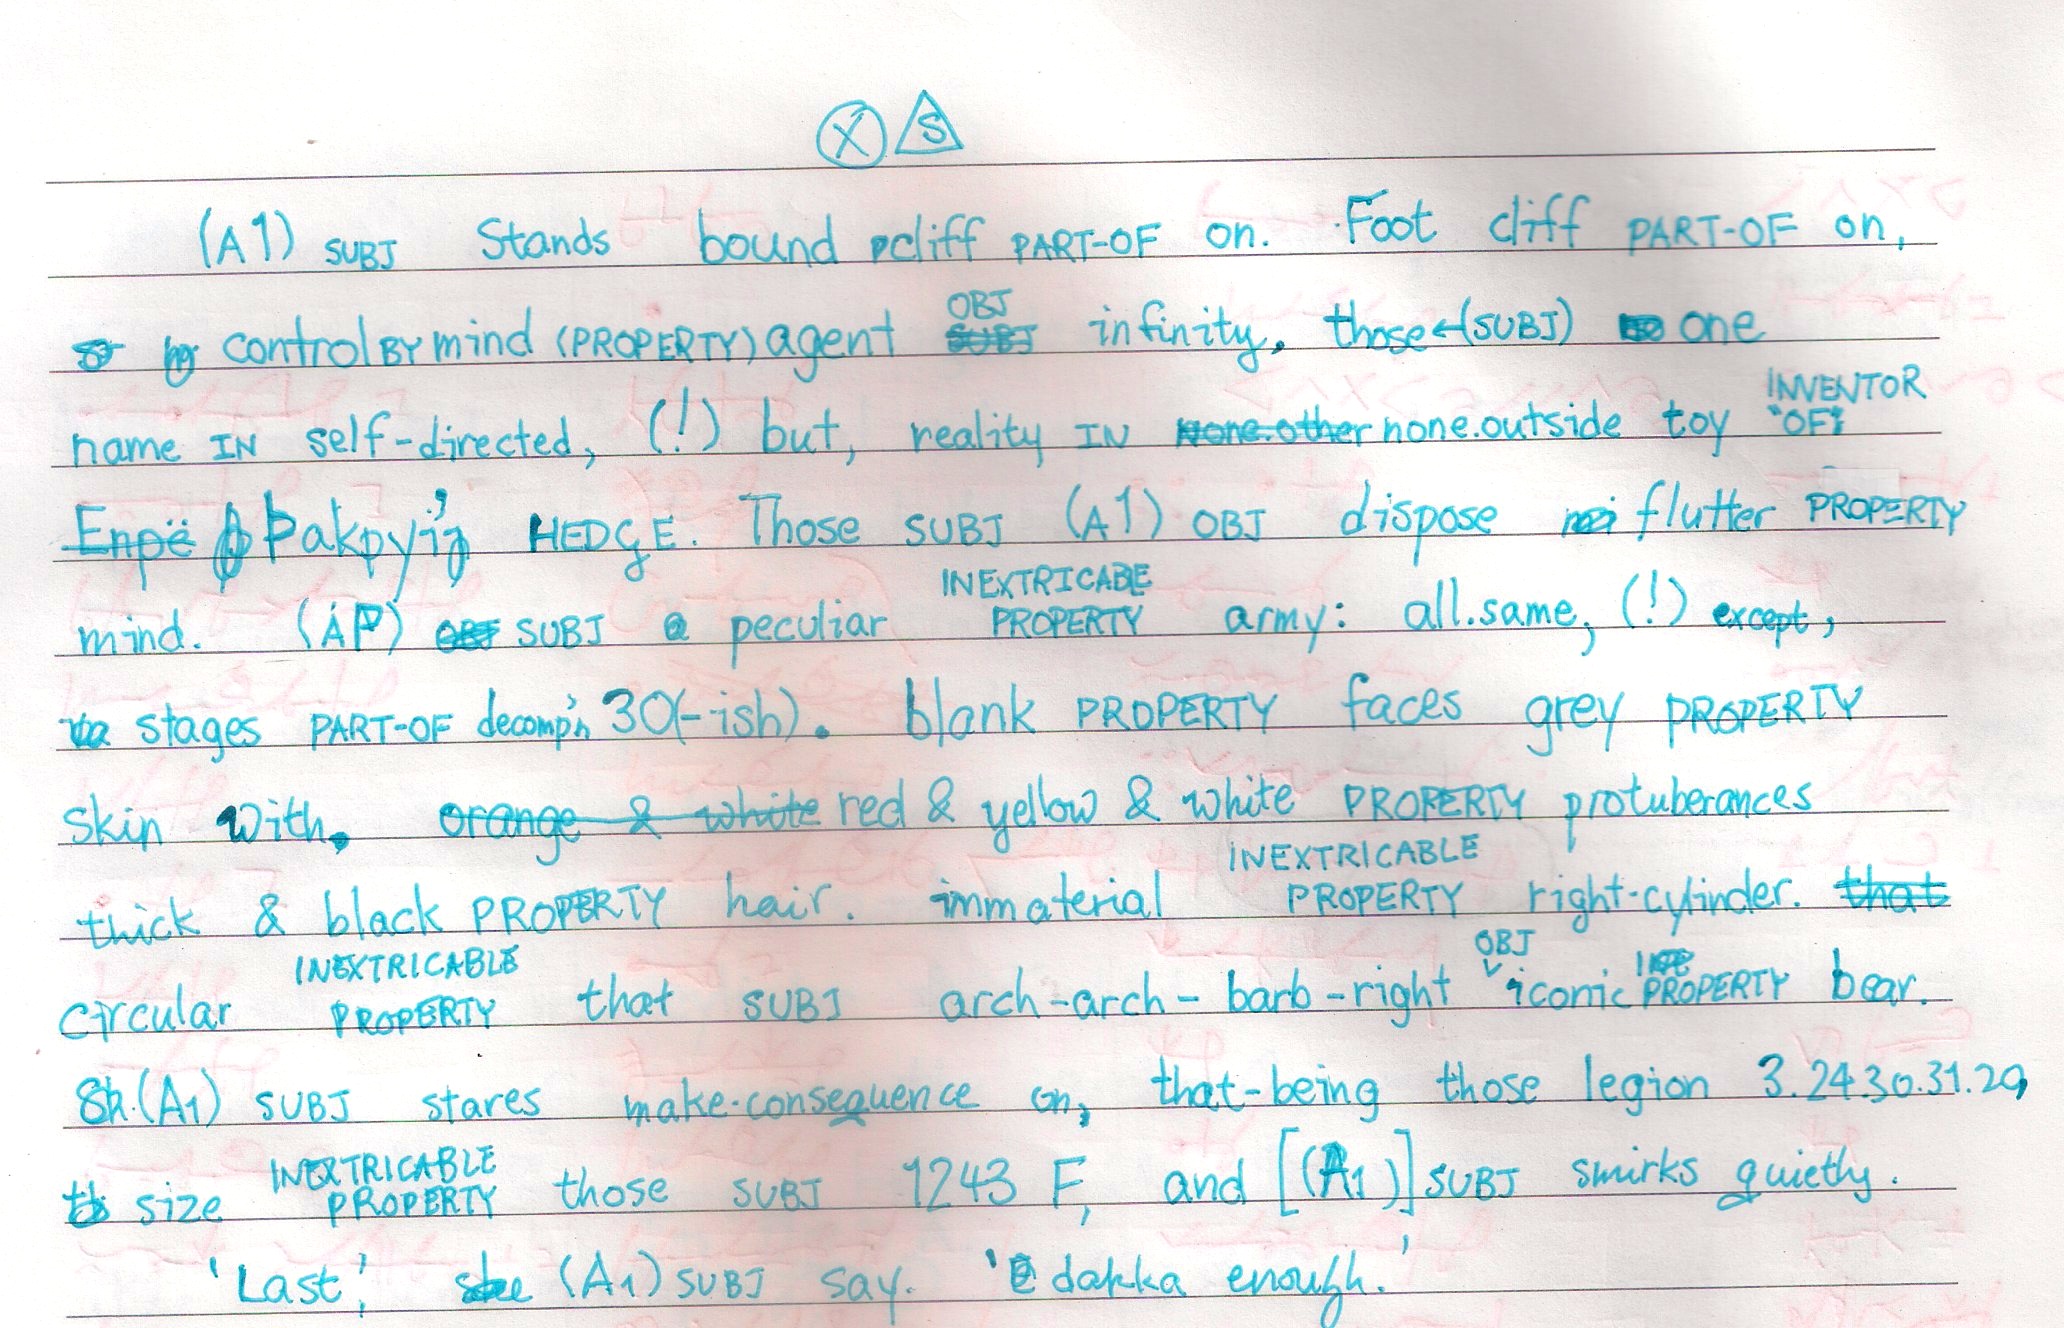 X S
(A1) SUBJ Stands bound cliff PART-OF on. Foot cliff PART-OF on,
OBJ
control BY mind (PROPERTY) agent infinity, those←(SUBJ) one
INVENTOR
name IN self-directed, (!) but, reality IN none.other none.outside toy "OF"
Enpë Þakpy'iŋ HEDGE. Those SUBJ (A1) OBJ dispose flutter PROPERTY
INEXTRICABLE
mind. (AP) SUBJ peculiar PROPERTY army: all.same, (!) except,
stages PART-OF decomp'n 30(-ish). blank PROPERTY faces grey PROPERTY
skin with, orange & white red & yellow & white PROPERTY protuberances
INEXTRICABLE
thick & black PROPERTY hair. immaterial PROPERTY right-cylinder. that
INEXTRICABLE OBJ
circular PROPERTY that SUBJ arch-arch-barb-right iconic PROPERTY bear.
(A1) SUBJ stares make.consequence on, that-being those legion 3.24.30.31.29,
INEXTRICABLE
size PROPERTY those SUBJ 1243 F, and [(A1)] SUBJ smirks quietly.
'Last,' she (A1) SUBJ say. 'dakka enough.'